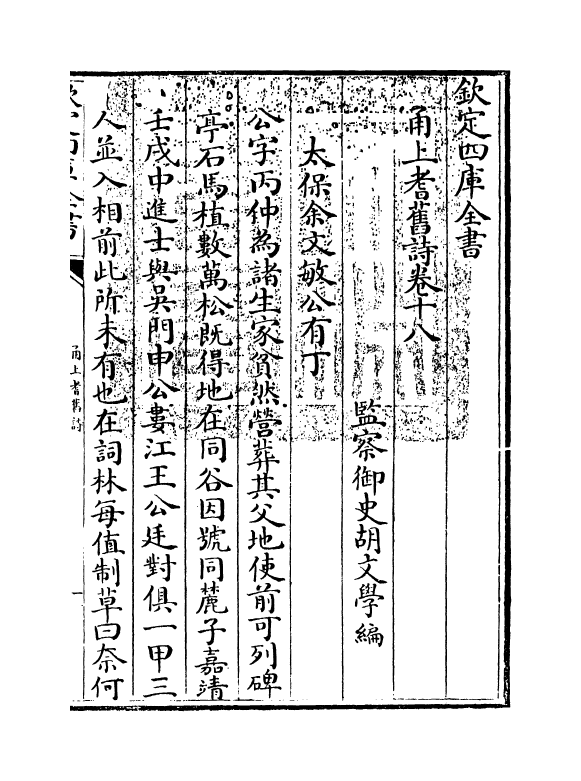 欽定四庫全書
甬上耆舊詩卷十八
監察御史胡文學編
太保余文敏公有丁
公字丙仲為諸生家貧然營葬其父地使前可列碑
亭石馬植數萬松既得地在同谷因號同麓子嘉靖
壬戌中進士與吳門申公婁江王公廷對俱一甲三
人並入相前此所未有也在詞林每值制草曰奈何
欽定四庫全書
甬上耆舊詩
一